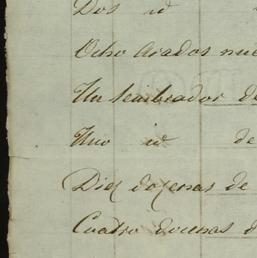 Dos id
Ocho Arados nue
Un sembrador de
Uno id de
Diez dozenas de
Cuatro docenas d